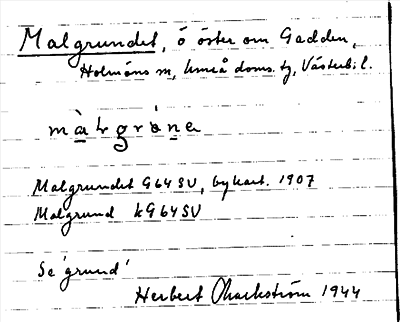 Malgrundet, ö öster om Gadden,
Holmöns sn, Umeå doms. tg, Västerb. l.
Malgrundet G64SV, bykart. 1907
Malgrund kG64SV
Se 'grund'
Herbert 1944